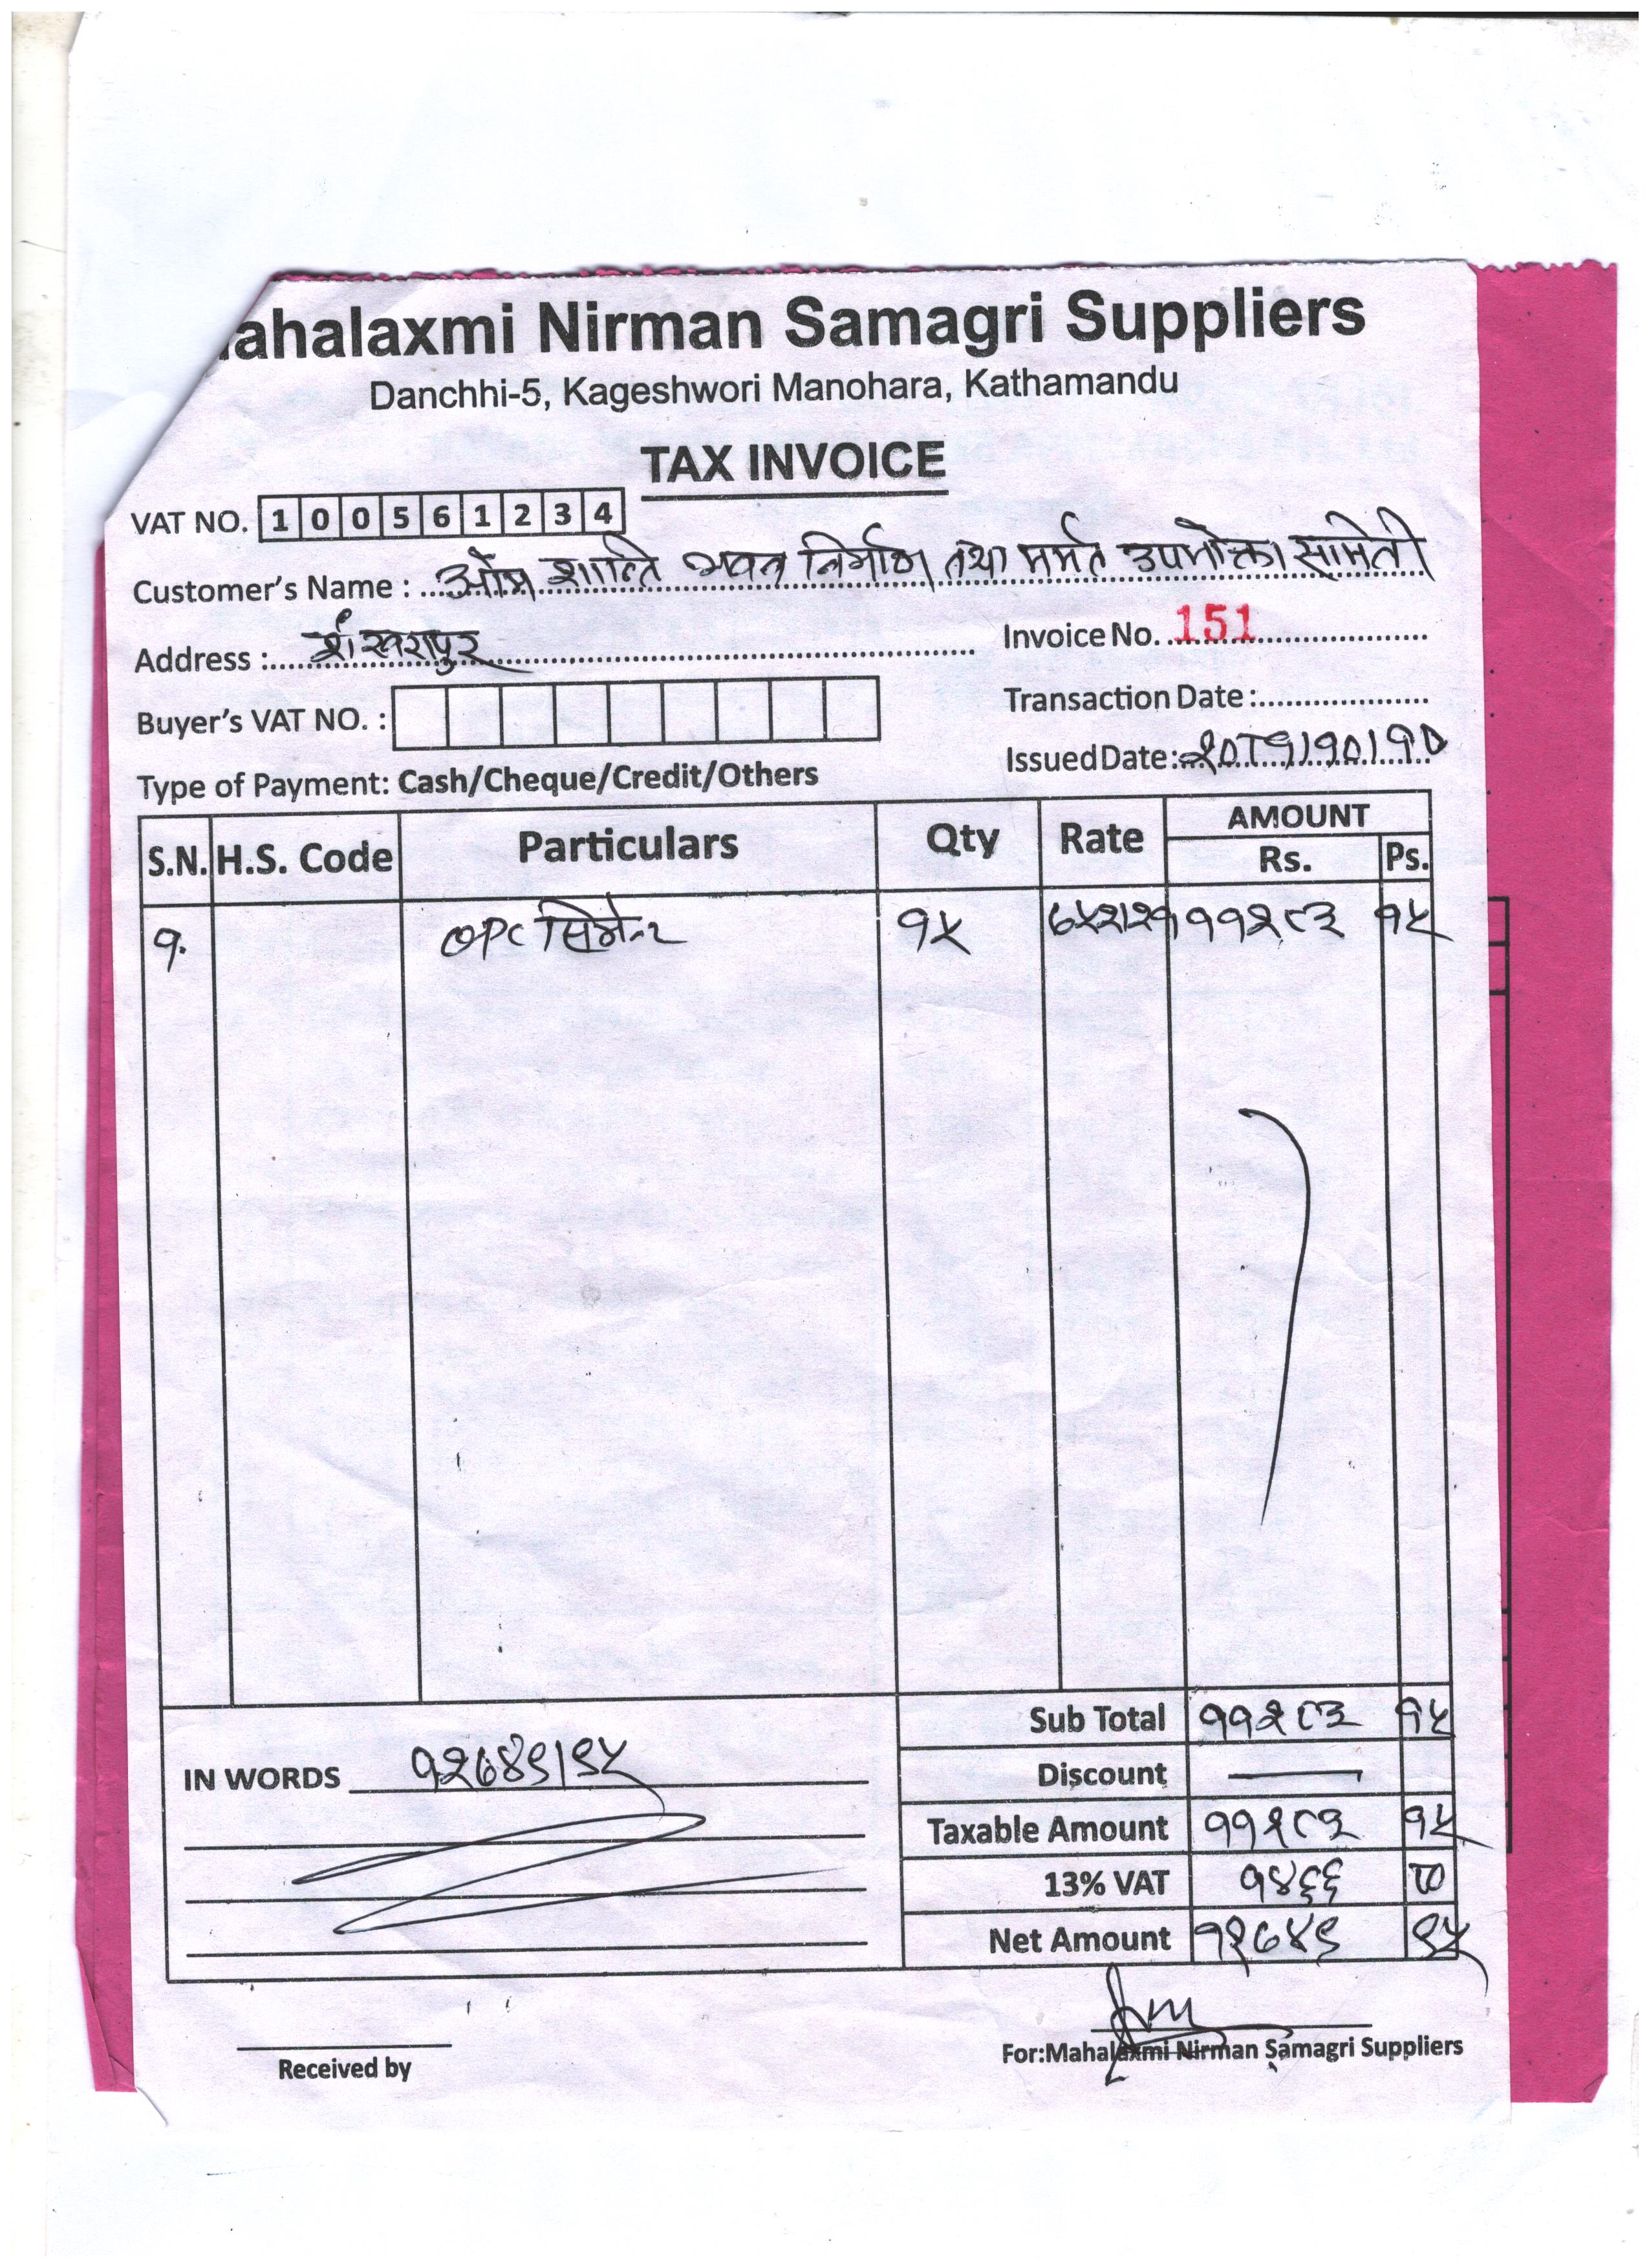 ahalaxmi Nirman Samagri Suppliers
Danchhi-5, Kageshwori Manohara, Kathamandu
TAX INVOICE
VAT NO. 1 0 0 5 6 1 2 3 4
Customer's Name : ओम शान्ति भवन निर्माण तथा मर्मत उपभोक्ता समिती
Address : शंखरापुर
Invoice No. 151
Buyer's VAT NO. :
Transaction Date :
Issued Date: २०८१।१०।१०
Type of Payment: Cash/Cheque/Credit/Others
S.N. H.S. Code Particulars Qty Rate AMOUNT
Rs. Ps.
१. OPC सिमेन्ट १५ ७५२।२१ ११२८३ १५
Sub Total ११२८३ १५
IN WORDS १२७४९।९५
Discount —
Taxable Amount ११२८३ १५
13% VAT १४६६ ८०
Net Amount १२७४९ ९५
Received by
For:Mahalaxmi Nirman Samagri Suppliers